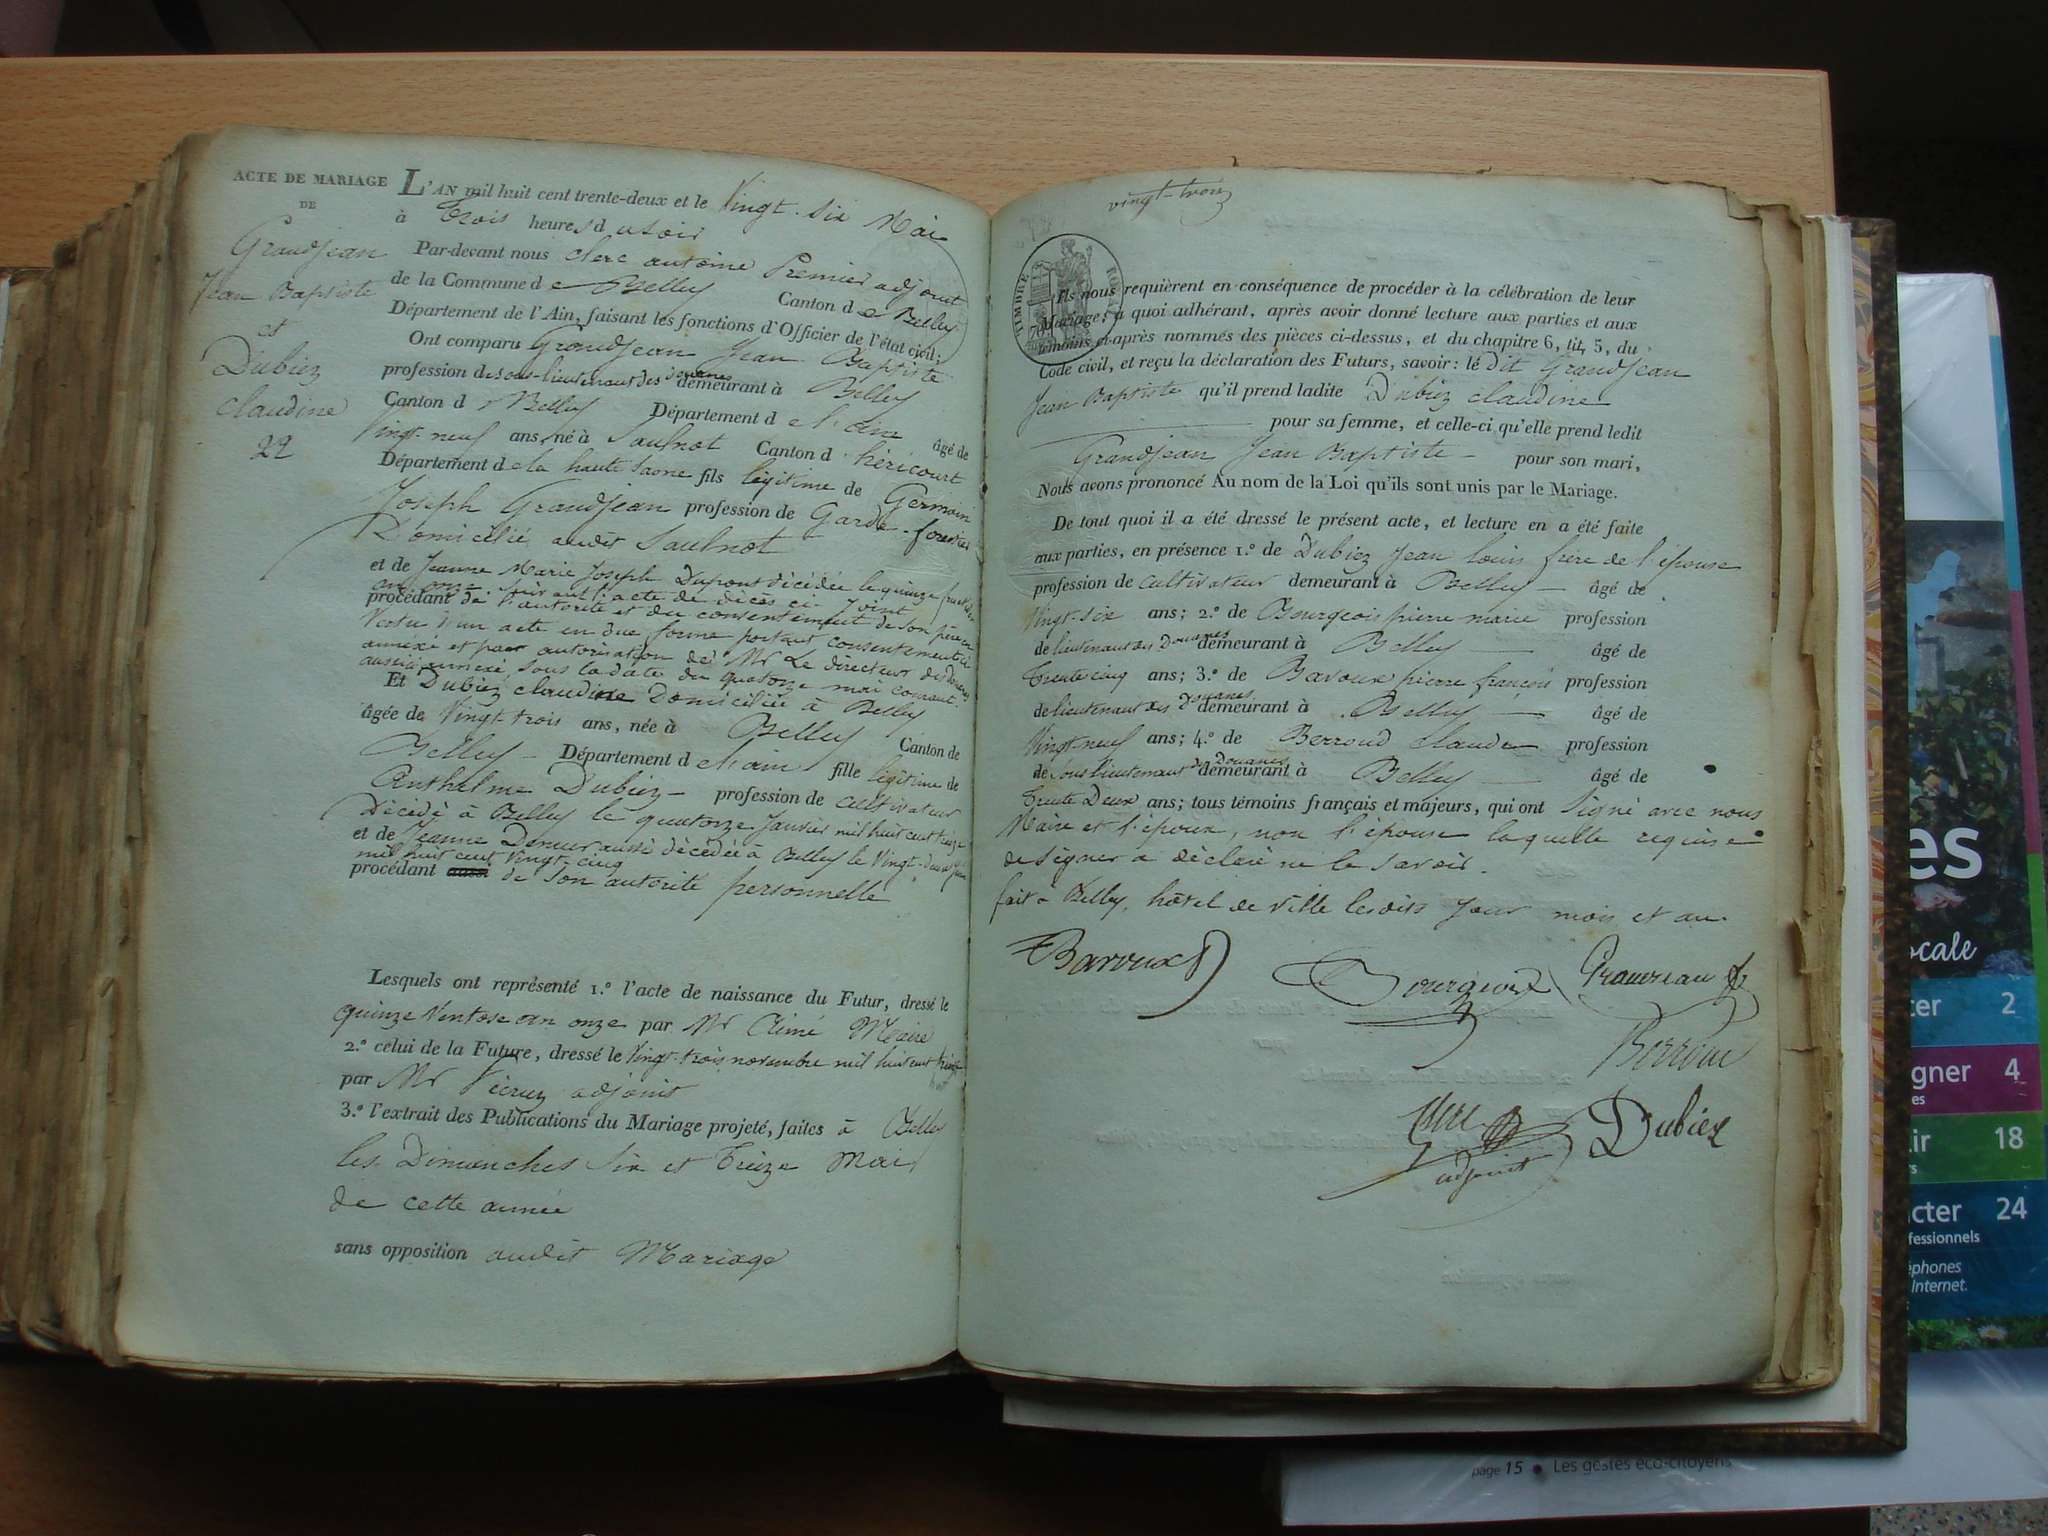 ACTE DE MARIAGE
DE
Grandjean
Jean Baptiste
et
Dubiez
claudine
22
L'AN mil huit cent trente-deux et le Vingt-six Mai
à Trois heures du soir
Par-devant nous clerc antoine Premier adjoint
de la Commune de Belley Canton de Belley
Département de l'Ain, faisant les fonctions d'Officier de l'état civil;
Ont comparu Grandjean Jean Baptiste
profession de sous-lieutenant des douanes demeurant à Belley
Canton d Belley Département de l'ain âgé de
Vingt-neuf ans, né à Saulnot Canton d' héricourt
Département de la haute Saone fils légitime de Germain
Joseph Grandjean profession de Garde-forestier
Domicilié audit Saulnot
et de Jeanne Marie Joseph Dupont décédée le quinze
an onze suivant l'acte de décès ci-joint
procédant de l'autorité et du consentement de son père en
Vertu d'un acte en due forme portant consentement ci
annéxé et par autorisation de Mr Le directeur des Douanes
aussi annéxé sous la date du quatorze mai courant.
Et Dubiez claudine Domiciliée à Belley
âgée de Vingt-trois ans, née à Belley Canton de
Belley Département de l'ain fille légitime de
Anthelme Dubiez profession de cultivateur
Décédé à Belley le quatorze Janvier mil huit cent treize
et de Jeanne aussi décédée à Belley le Vingt-deux
mil huit cent Vingt-cinq
procédant de son autorité personnelle
Lesquels ont représenté 1.º l'acte de naissance du Futur, dressé le
quinze Ventose an onze par Mr Aimé Maire
2.º celui de la Future, dressé le Vingt-trois novembre mil huit cent
par Mr adjoint
3.º l'extrait des Publications du Mariage projeté, faites à Belley
les Dimanches Six et Treize Mai
de cette année
sans opposition audit Mariage
vingt-trois
TIMBRE ROYAL
Ils nous requièrent en conséquence de procéder à la célébration de leur
Mariage; à quoi adhérant, après avoir donné lecture aux parties et aux
témoins ci-après nommés des pièces ci-dessus, et du chapitre 6, tit, 5, du
Code civil, et reçu la déclaration des Futurs, savoir: le dit Grandjean
Jean Baptiste qu'il prend ladite Dubiez claudine
pour sa femme, et celle-ci qu'elle prend ledit
Grandjean Jean Baptiste pour son mari,
Nous avons prononcé Au nom de la Loi qu'ils sont unis par le Mariage.
De tout quoi il a été dressé le présent acte, et lecture en a été faite
aux parties, en présence 1.º de Dubiez Jean louis frère de l'épouse
profession de cultivateur demeurant à Belley âgé de
Vingt-six ans; 2.º de Bourgeois pierre marie profession
de lieutenant des Douanes demeurant à Belley âgé de
Trente cinq ans; 3.º de Bavoux pierre françois profession
de lieutenant des Douanes demeurant à Belley âgé de
Vingt-neuf ans; 4.º de Berroud Claude profession
de Sous lieutenant des Douanes demeurant à Belley âgé de
Trente Deux ans; tous témoins français et majeurs, qui ont Signé avec nous
Maire et l'époux, non l'épouse laquelle requise
de signer a déclaré ne le savoir.
fait à Belley, hôtel de Ville lesdits Jour mois et an.
Bavoux
Bourgeois
Grandjean
Berroud
Clerc
adjoint
Dubiez
es
ocale
ter 2
gner 4
es
ir 18
rs
cter 24
fessionnels
éphones
Internet.
page 15 • Les gestes éco-citoyens